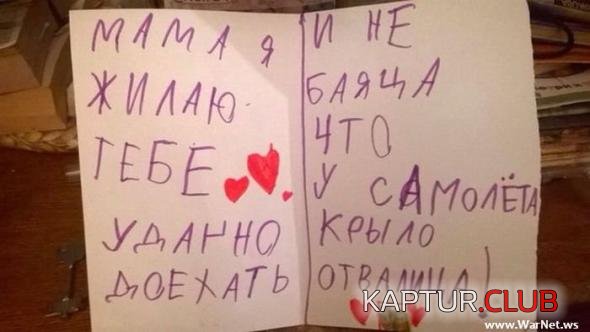 МАМА Я
ЖИЛАЮ
ТЕБЕ
УДАЧНО
ДОЕХАТЬ
И НЕ
БАЯЦА
ЧТО
У САМОЛЁТА
КРЫЛО
ОТВАЛИЦА!
KAPTUR.CLUB
www.WarNet.ws